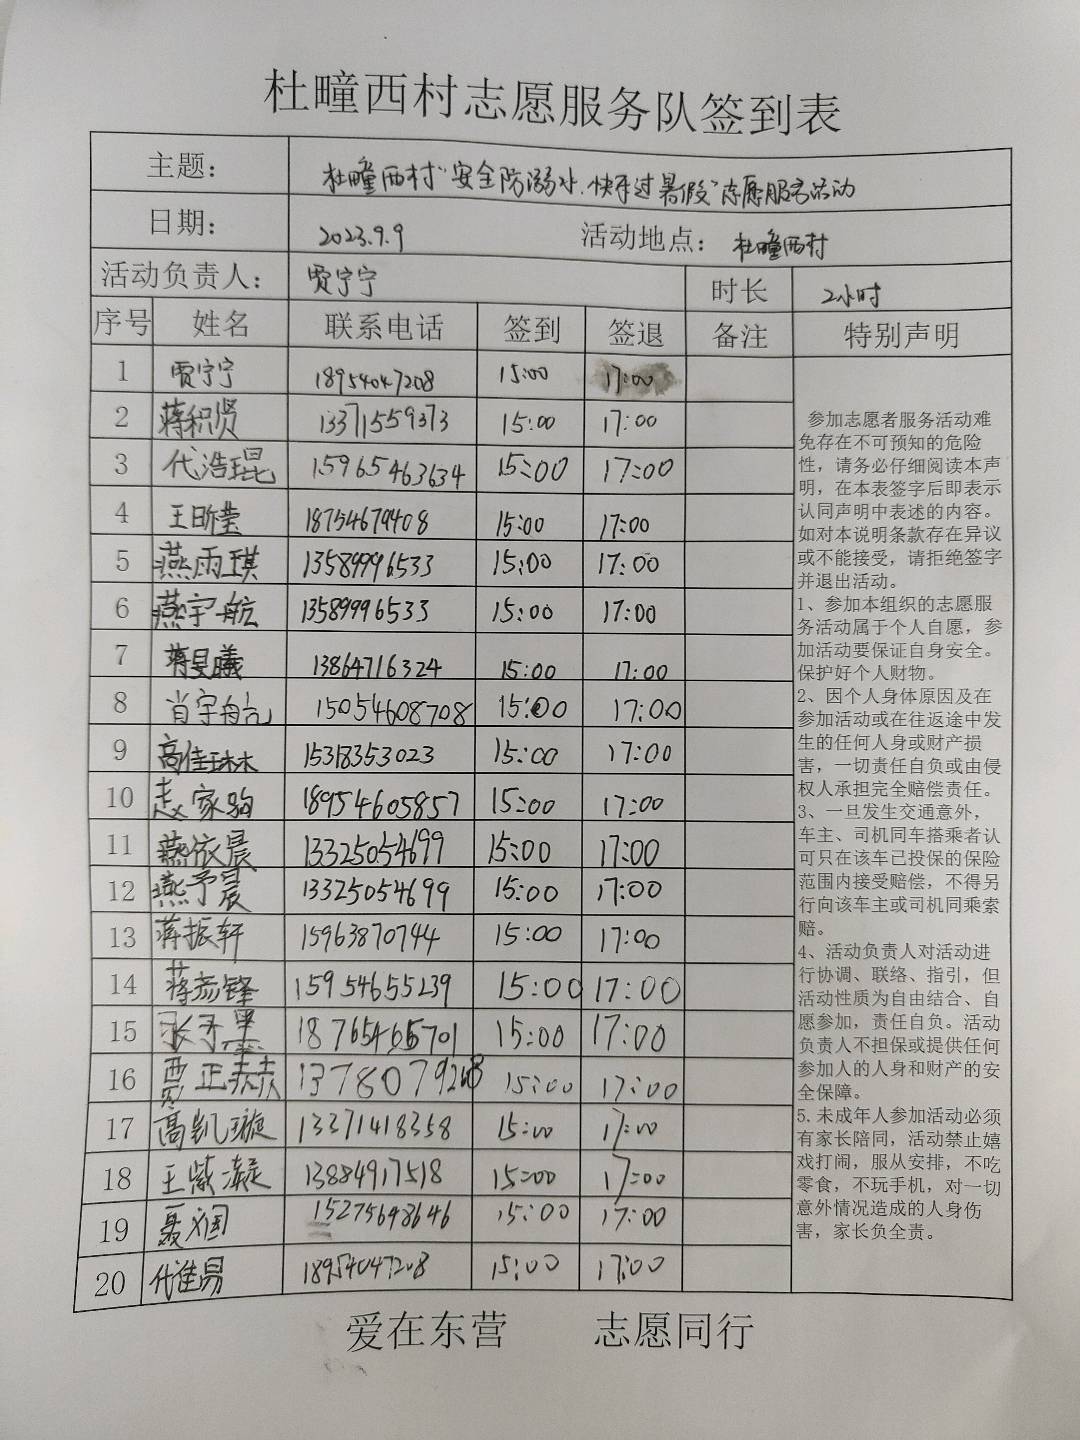 杜疃西村志愿服务队签到表
主题： 杜疃西村"安全防溺水.快乐过暑假"志愿服务活动
日期： 2023.9.9 活动地点： 杜疃西村
活动负责人： 贾宁宁 时长 2小时
序号 姓名 联系电话 签到 签退 备注 特别声明
1 贾宁宁 18954047208 15:00 17:00
2 蒋积贤 13371559373 15:00 17:00
3 代浩琨 15965463634 15:00 17:00
4 王昕莹 18754679408 15:00 17:00
5 燕雨琪 13589996533 15:00 17:00
6 燕宇航 13589996533 15:00 17:00
7 蒋昱曦 13864716324 15:00 17:00
8 肖宇航 15054608708 15:00 17:00
9 高佳琳 15318353023 15:00 17:00
10 赵家驹 18954605857 15:00 17:00
11 燕依晨 13325054699 15:00 17:00
12 燕予晨 13325054699 15:00 17:00
13 蒋振轩 15963870744 15:00 17:00
14 蒋 锋 15954655239 15:00 17:00
15 张子墨 15:00 17:00
16 贾正 15:00 17:00
17 高凯璇 13371418358 15:00 17:00
18 王紫凝 13884917518 15:00 17:00
19 聂 15275698646 15:00 17:00
20 代 易 18954047208 15:00 17:00
参加志愿者服务活动难
免存在不可预知的危险
性，请务必仔细阅读本声
明，在本表签字后即表示
认同声明中表述的内容。
如对本说明条款存在异议
或不能接受，请拒绝签字
并退出活动。
1、参加本组织的志愿服
务活动属于个人自愿，参
加活动要保证自身安全。
保护好个人财物。
2、因个人身体原因及在
参加活动或在往返途中发
生的任何人身或财产损
害，一切责任自负或由侵
权人承担完全赔偿责任。
3、一旦发生交通意外，
车主、司机同车搭乘者认
可只在该车已投保的保险
范围内接受赔偿，不得另
行向该车主或司机同乘索
赔。
4、活动负责人对活动进
行协调、联络、指引，但
活动性质为自由结合、自
愿参加，责任自负。活动
负责人不担保或提供任何
参加人的人身和财产的安
全保障。
5.未成年人参加活动必须
有家长陪同，活动禁止嬉
戏打闹，服从安排，不吃
零食，不玩手机，对一切
意外情况造成的人身伤
害，家长负全责。
爱在东营 志愿同行